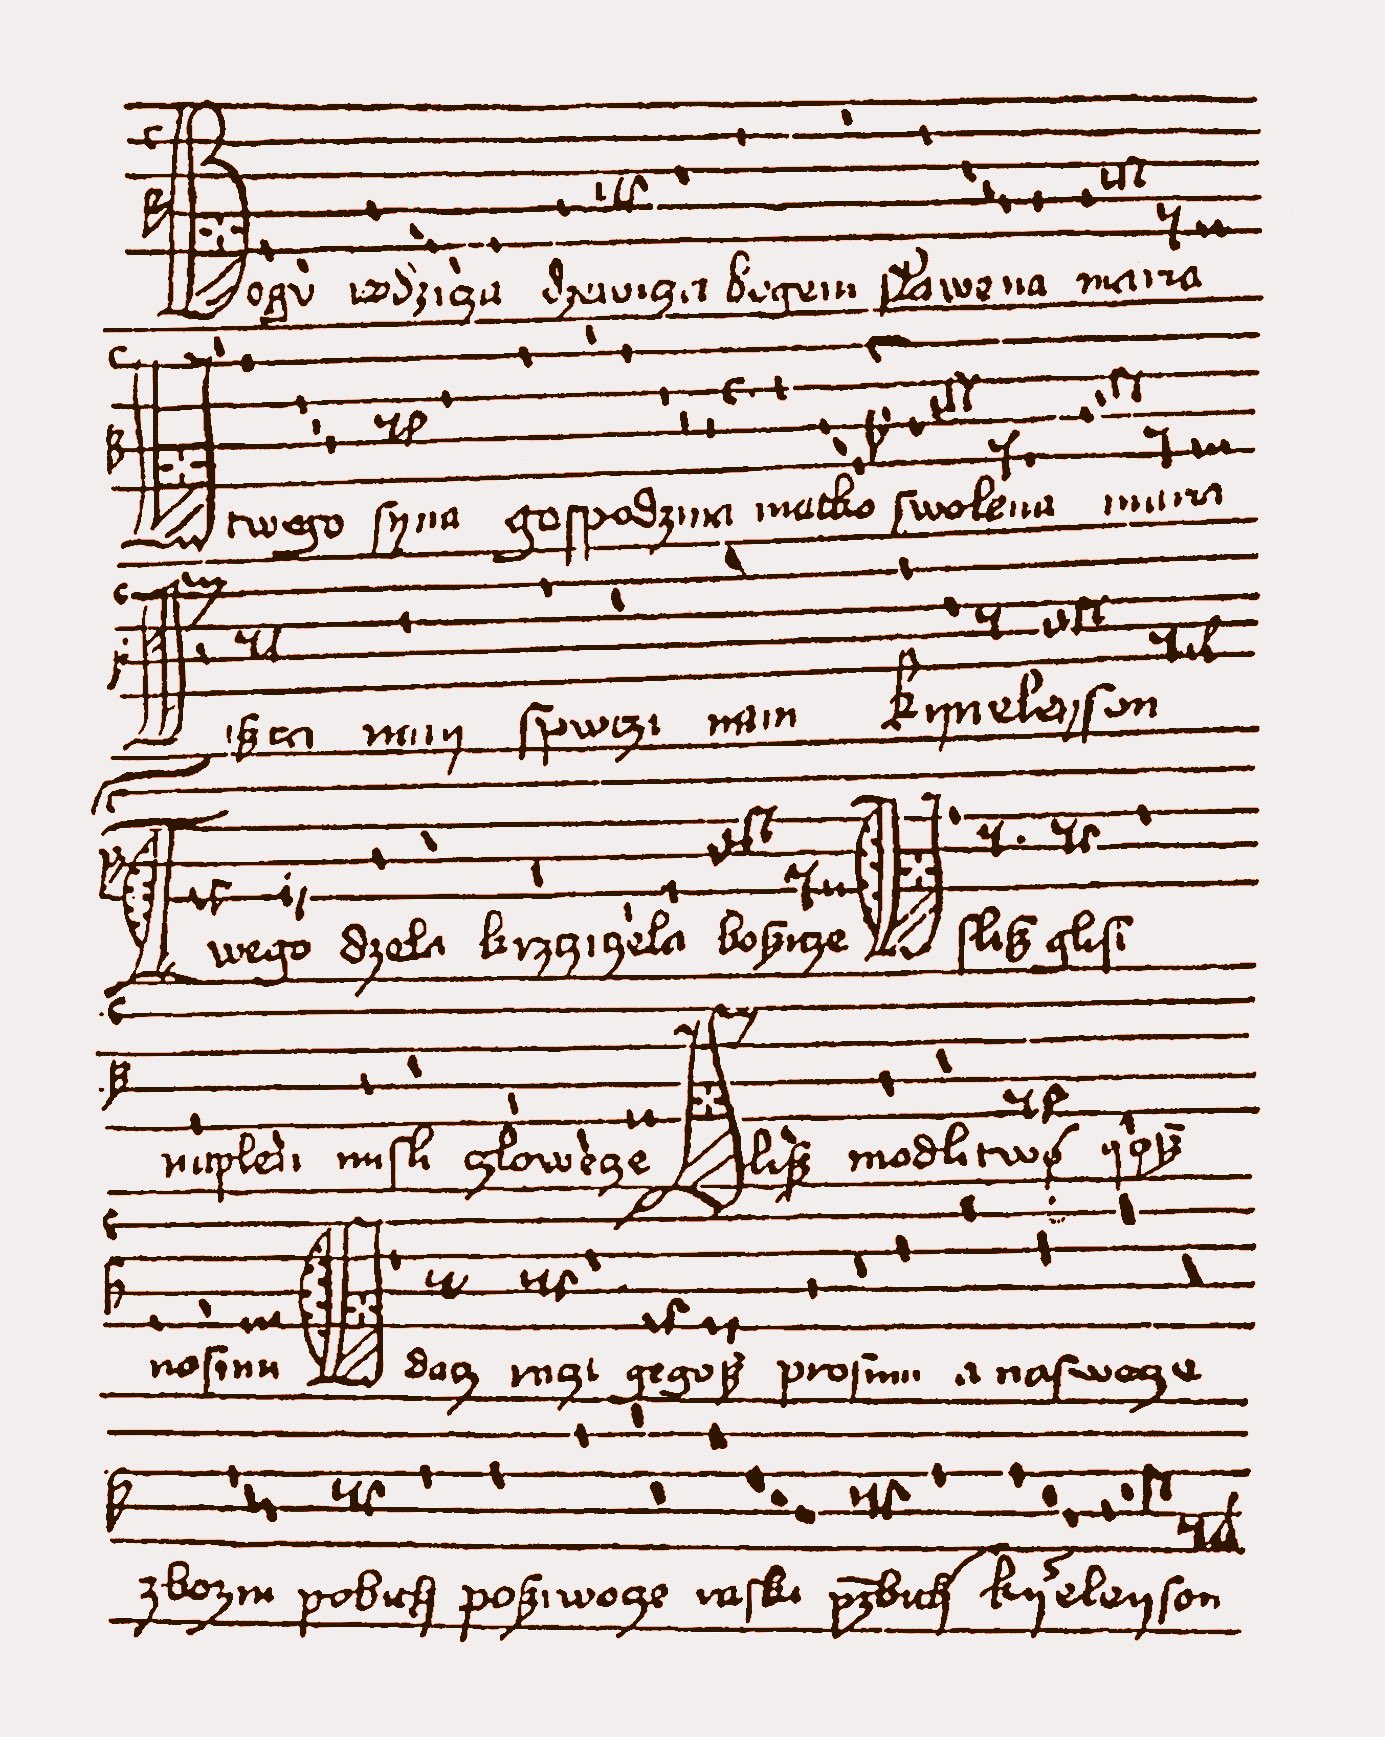 Bogu rodzicza dzewicza bogem slawena maria
U twego syna gospodzina matko swolena maria
siszczi nam spwczi nam kyrieleyson
Twego dzela krzcziczela bozicze Uslisz glosi
naplen misli czlowecze Slisz modlitwø yøsz
nosimi Odacz raczi gegosz prosimi a naswecze
zbozni pobith posziwocze raski pzebith kyrieleyson